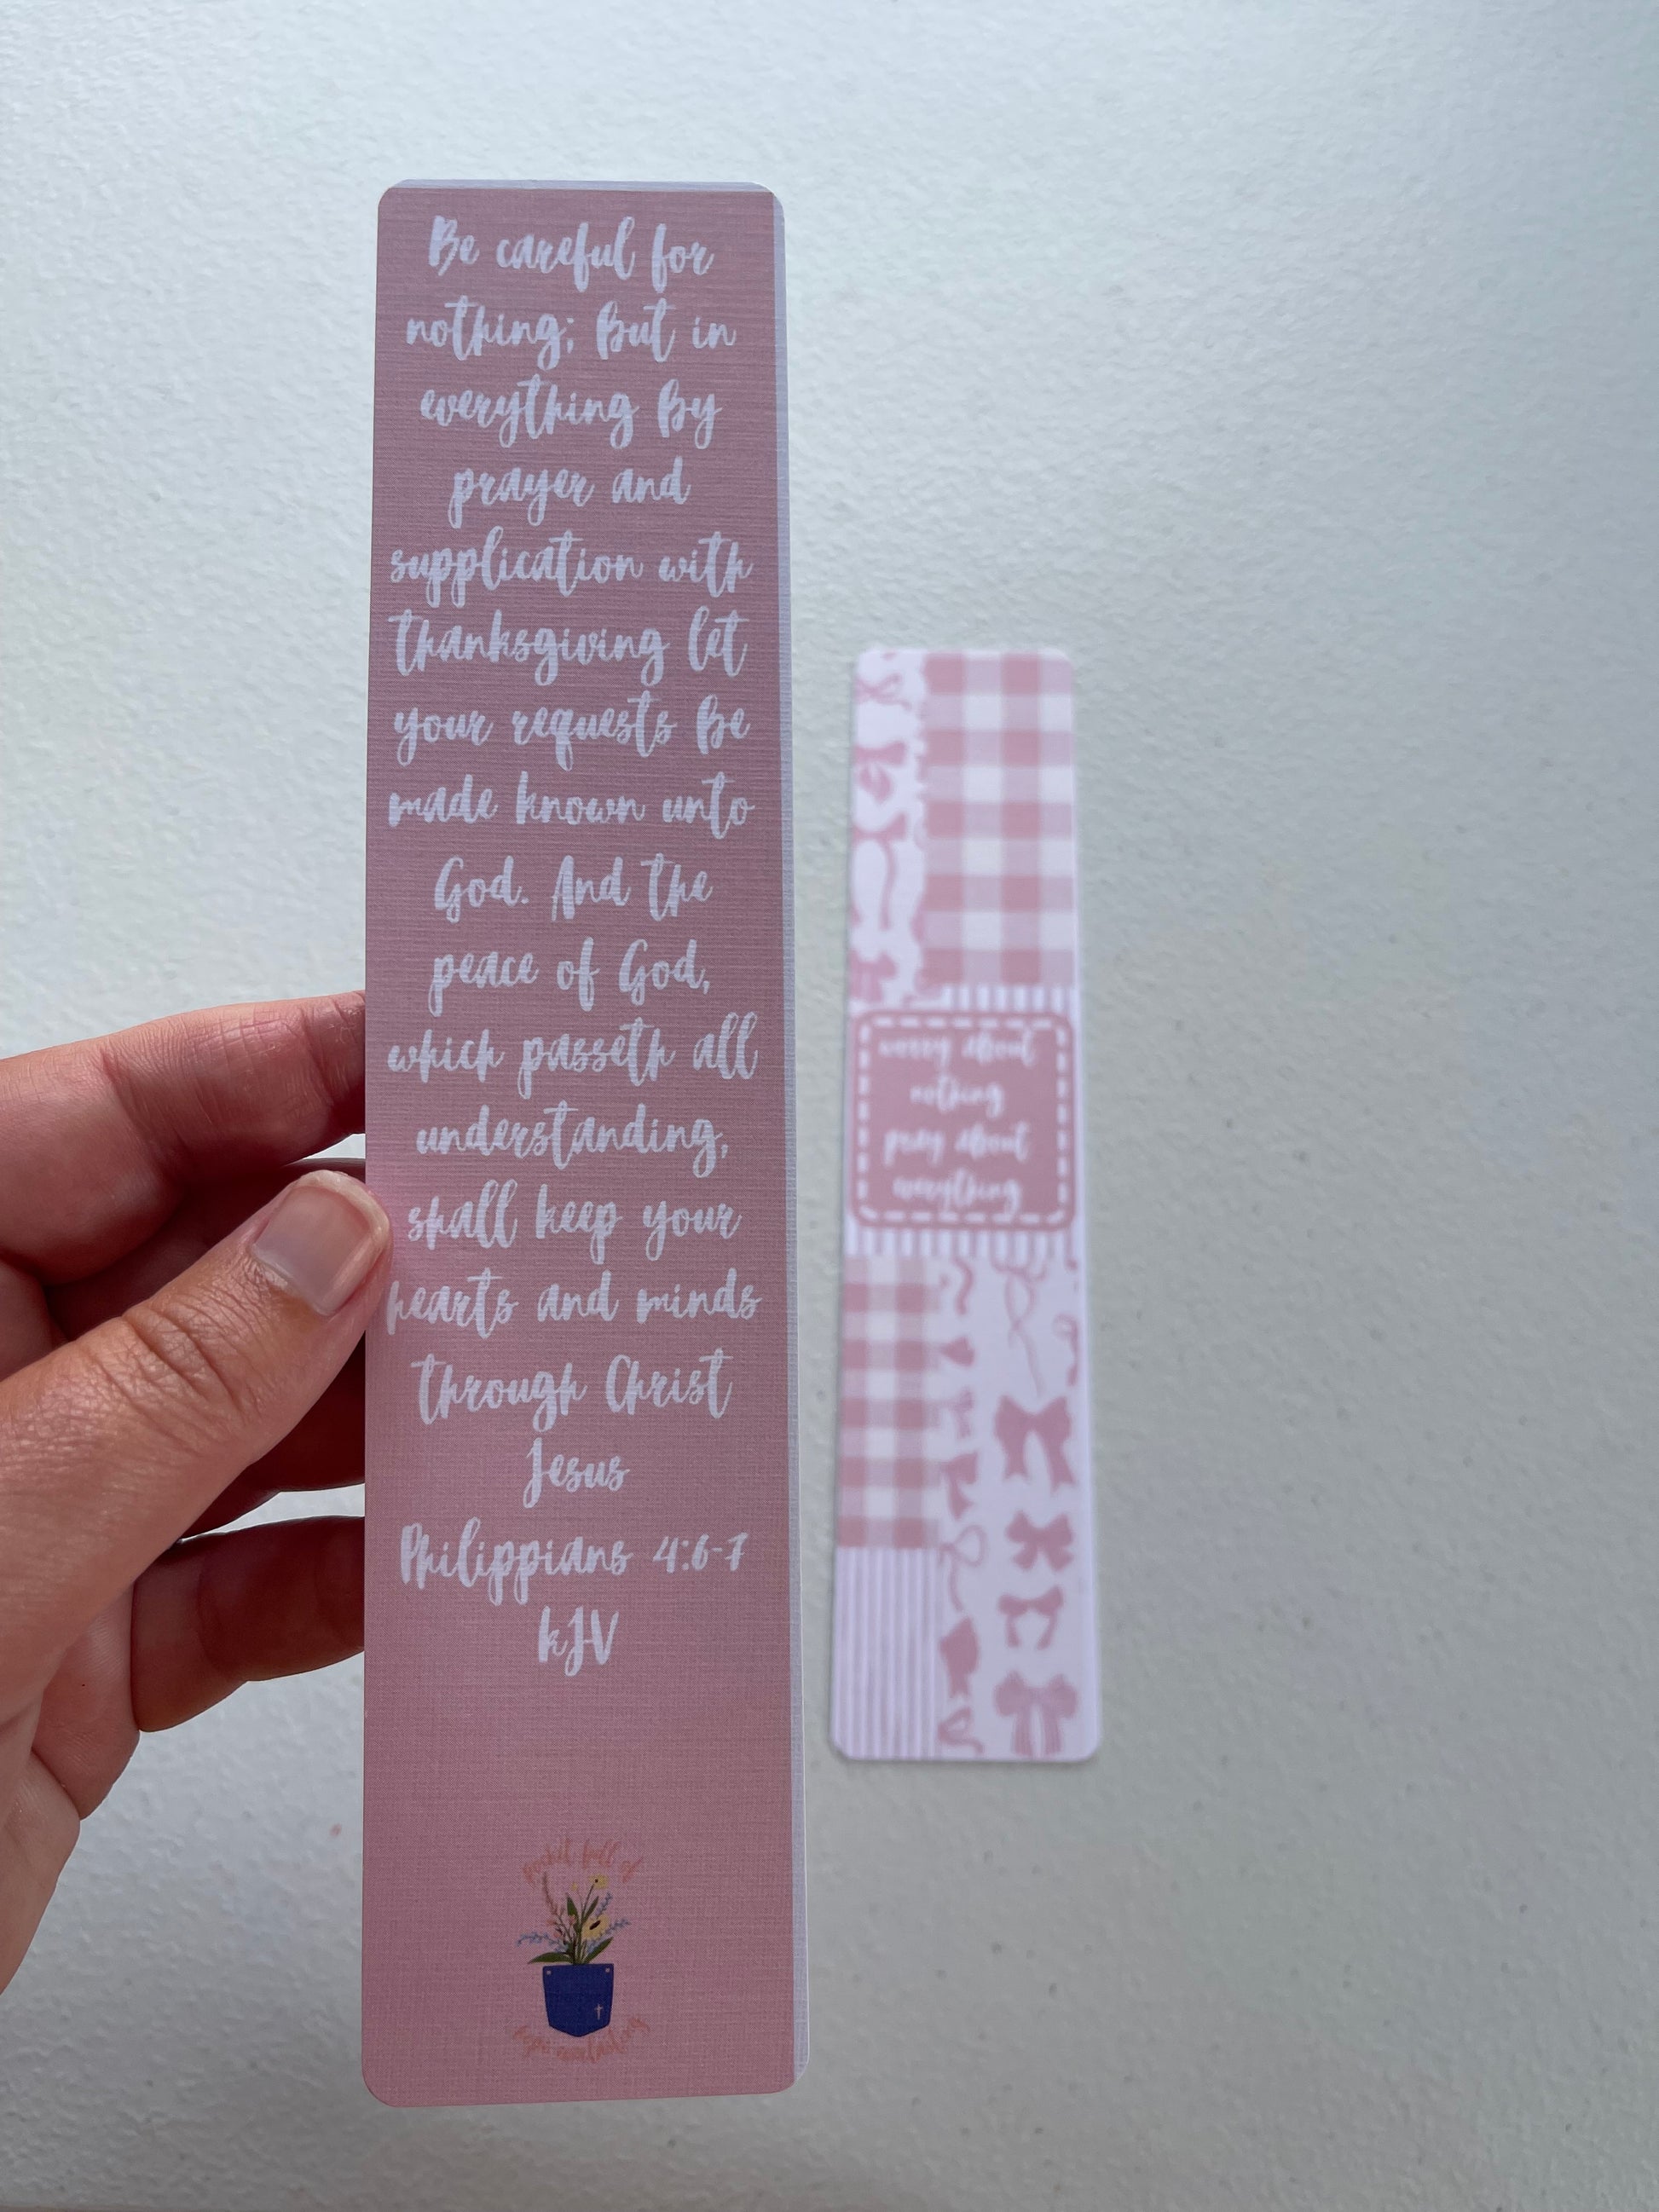 Be careful for
nothing; But in
everything By
prayer and
supplication with
thanksgiving let
your requests Be
made known unto
God. And the
peace of God,
which passeth all
understanding,
shall keep your
hearts and minds
through Christ
Jesus
Philippians 4:6-7
KJV
Pocket full of
hope everlasting
worry about
nothing
pray about
everything